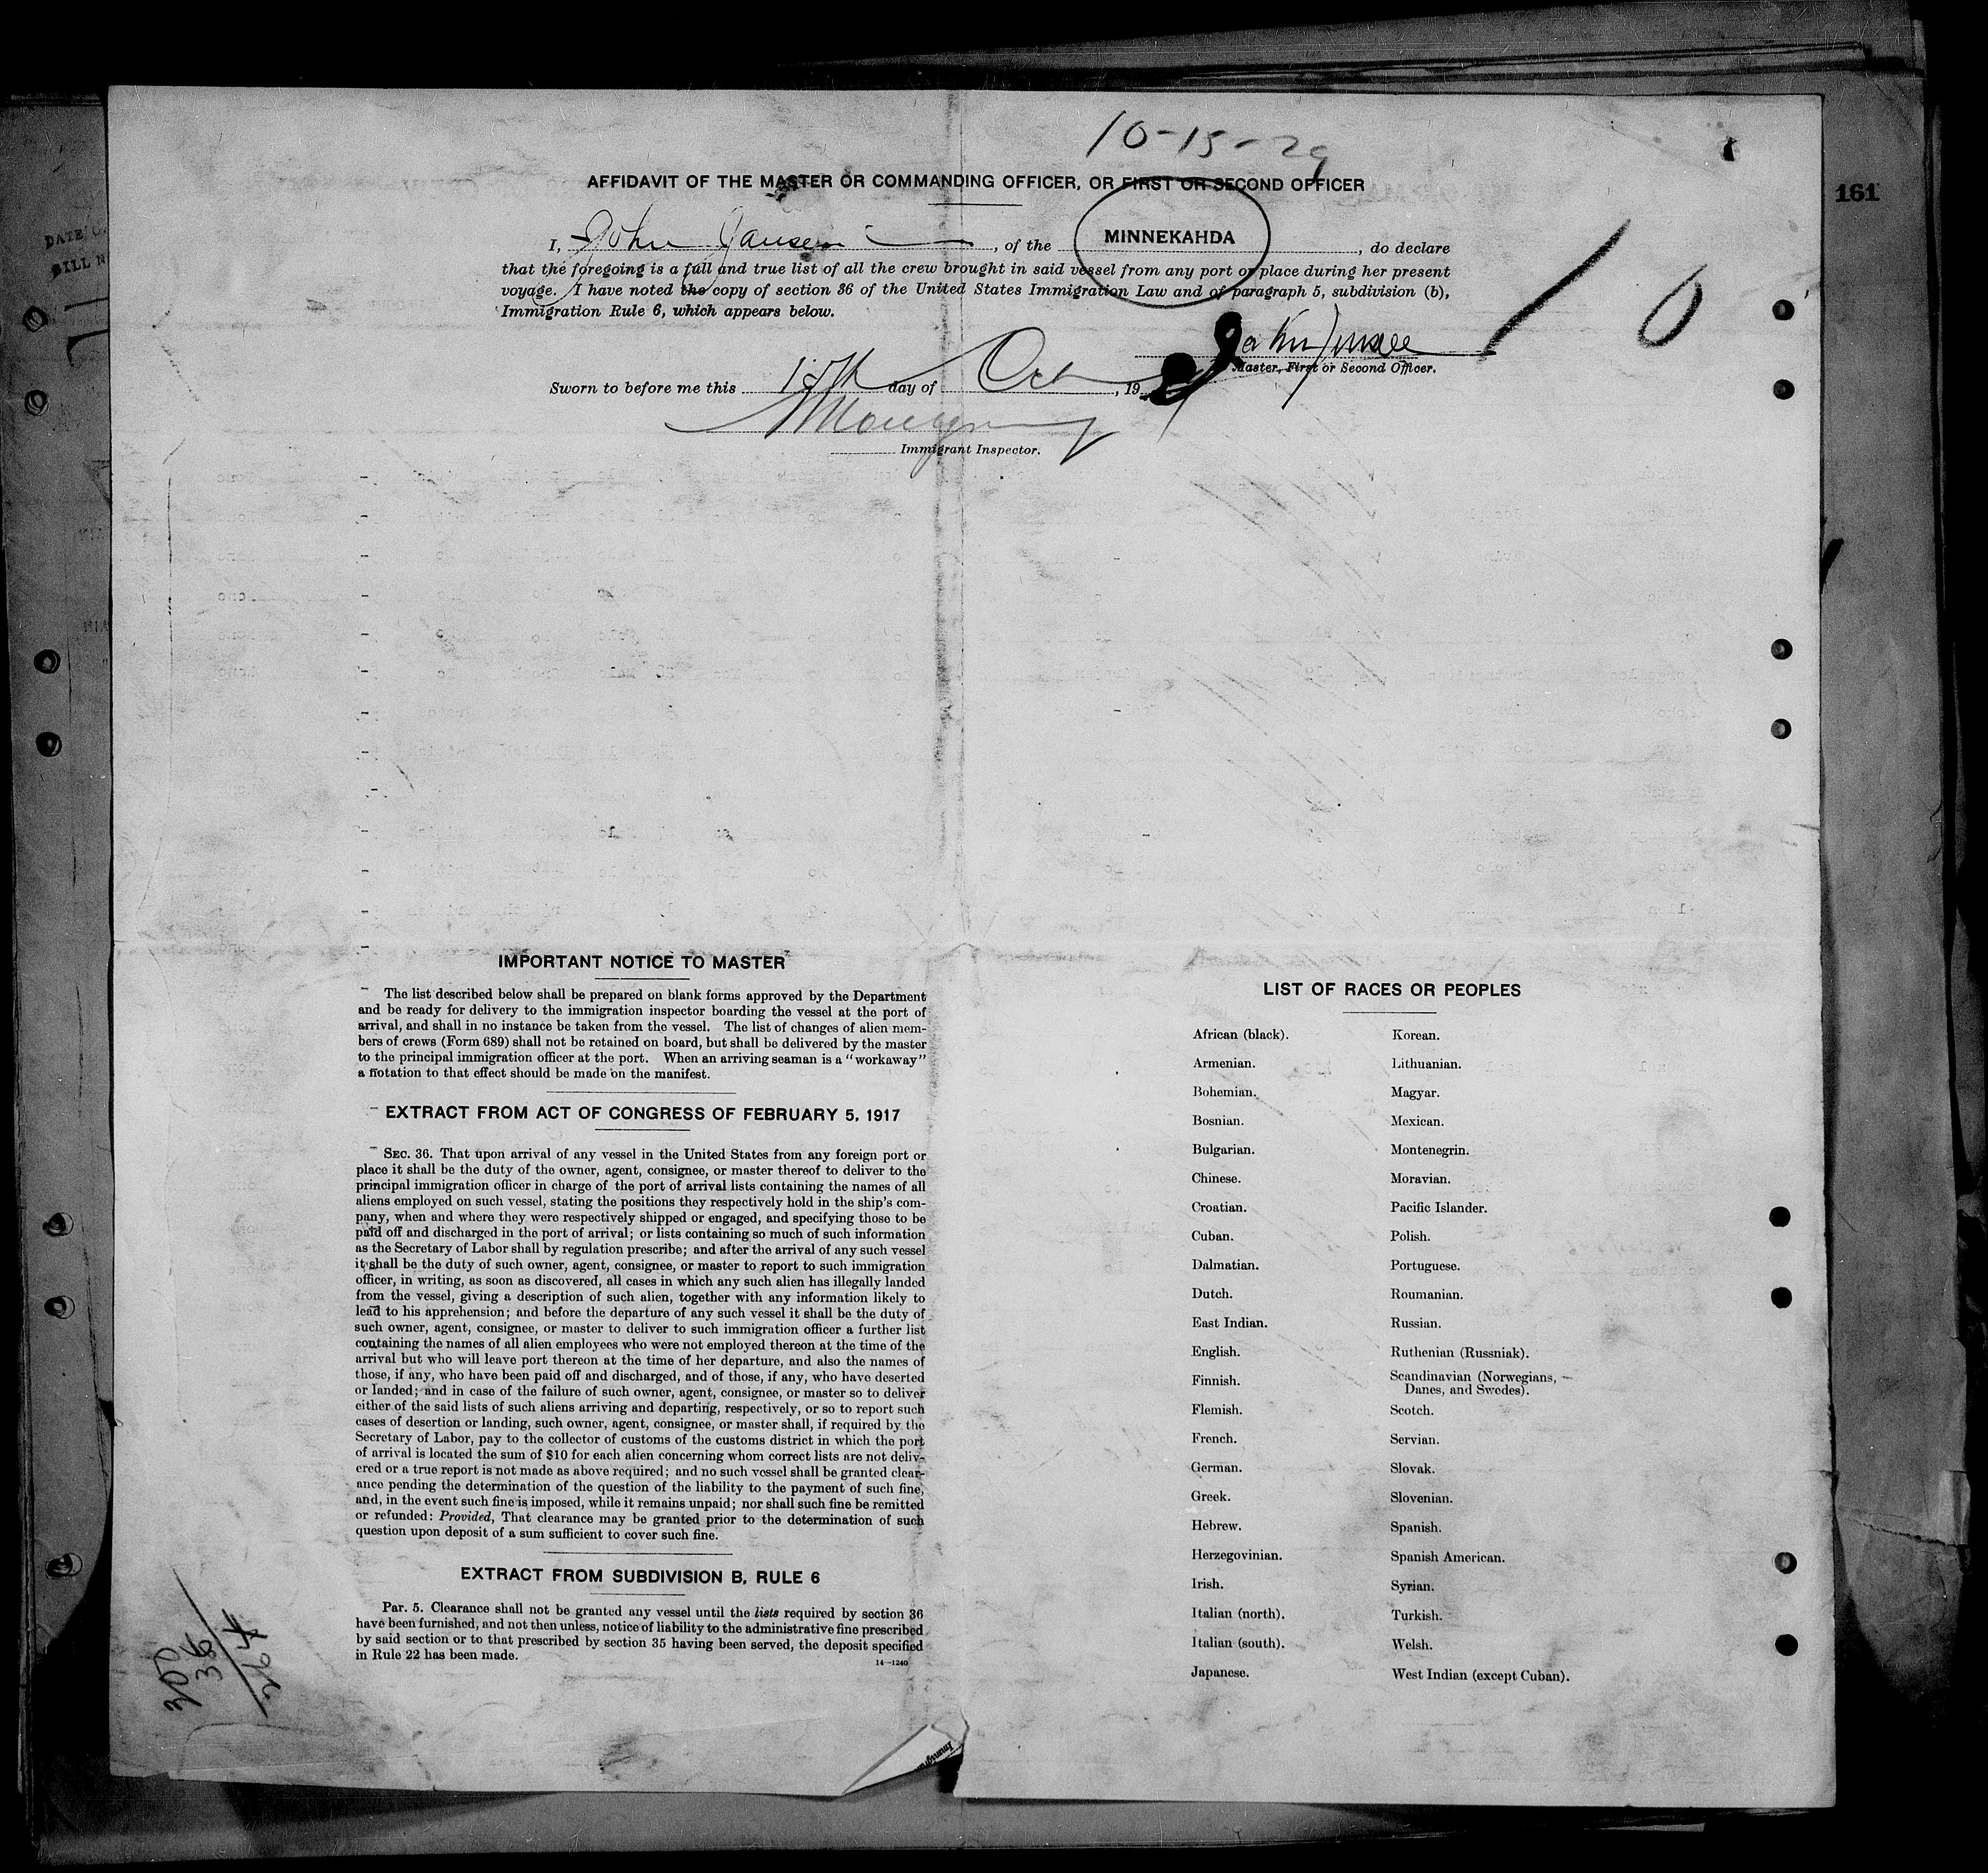 10-15-29
161
AFFIDAVIT OF THE MASTER OR COMMANDING OFFICER, OR FIRST OR SECOND OFFICER
I, John Jansen, of the MINNEKAHDA, do declare
that the foregoing is a full and true list of all the crew brought in said vessel from any port or place during her present
voyage. I have noted the copy of section 36 of the United States Immigration Law and of paragraph 5, subdivision (b),
Immigration Rule 6, which appears below.
10
Master, First or Second Officer.
Sworn to before me this 15th day of Oct, 19
Immigrant Inspector.
IMPORTANT NOTICE TO MASTER
The list described below shall be prepared on blank forms approved by the Department
and be ready for delivery to the immigration inspector boarding the vessel at the port of
arrival, and shall in no instance be taken from the vessel. The list of changes of alien mem-
bers of crews (Form 689) shall not be retained on board, but shall be delivered by the master
to the principal immigration officer at the port. When an arriving seaman is a "workaway"
a notation to that effect should be made on the manifest.
EXTRACT FROM ACT OF CONGRESS OF FEBRUARY 5, 1917
SEC. 36. That upon arrival of any vessel in the United States from any foreign port or
place it shall be the duty of the owner, agent, consignee, or master thereof to deliver to the
principal immigration officer in charge of the port of arrival lists containing the names of all
aliens employed on such vessel, stating the positions they respectively hold in the ship's com-
pany, when and where they were respectively shipped or engaged, and specifying those to be
paid off and discharged in the port of arrival; or lists containing so much of such information
as the Secretary of Labor shall by regulation prescribe; and after the arrival of any such vessel
it shall be the duty of such owner, agent, consignee, or master to report to such immigration
officer, in writing, as soon as discovered, all cases in which any such alien has illegally landed
from the vessel, giving a description of such alien, together with any information likely to
lead to his apprehension; and before the departure of any such vessel it shall be the duty of
such owner, agent, consignee, or master to deliver to such immigration officer a further list
containing the names of all alien employees who were not employed thereon at the time of the
arrival but who will leave port thereon at the time of her departure, and also the names of
those, if any, who have been paid off and discharged, and of those, if any, who have deserted
or landed; and in case of the failure of such owner, agent, consignee, or master so to deliver
either of the said lists of such aliens arriving and departing, respectively, or so to report such
cases of desertion or landing, such owner, agent, consignee, or master shall, if required by the
Secretary of Labor, pay to the collector of customs of the customs district in which the port
of arrival is located the sum of $10 for each alien concerning whom correct lists are not deliv-
ered or a true report is not made as above required; and no such vessel shall be granted clear-
ance pending the determination of the question of the liability to the payment of such fine,
and, in the event such fine is imposed, while it remains unpaid; nor shall such fine be remitted
or refunded: Provided, That clearance may be granted prior to the determination of such
question upon deposit of a sum sufficient to cover such fine.
EXTRACT FROM SUBDIVISION B, RULE 6
Par. 5. Clearance shall not be granted any vessel until the lists required by section 36
have been furnished, and not then unless, notice of liability to the administrative fine prescribed
by said section or to that prescribed by section 35 having been served, the deposit specified
in Rule 22 has been made.
14-1240
300
36
LIST OF RACES OR PEOPLES
African (black).
Armenian.
Bohemian.
Bosnian.
Bulgarian.
Chinese.
Croatian.
Cuban.
Dalmatian.
Dutch.
East Indian.
English.
Finnish.
Flemish.
French.
German.
Greek.
Hebrew.
Herzegovinian.
Irish.
Italian (north).
Italian (south).
Japanese.
Korean.
Lithuanian.
Magyar.
Mexican.
Montenegrin.
Moravian.
Pacific Islander.
Polish.
Portuguese.
Roumanian.
Russian.
Ruthenian (Russniak).
Scandinavian (Norwegians,
Danes, and Swedes).
Scotch.
Servian.
Slovak.
Slovenian.
Spanish.
Spanish American.
Syrian.
Turkish.
Welsh.
West Indian (except Cuban).